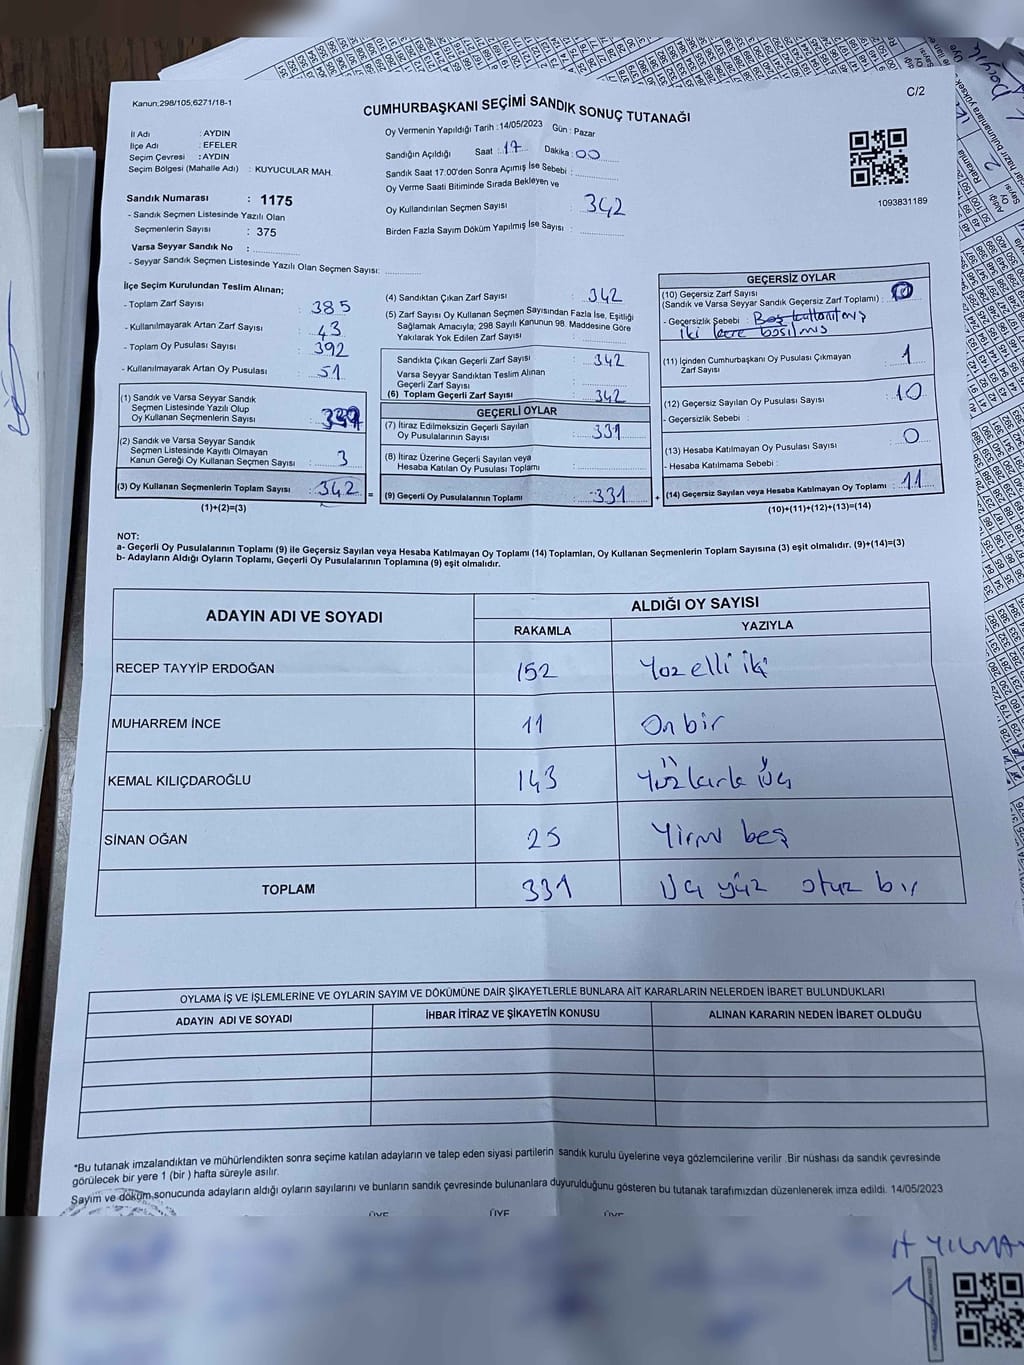 Kanun;298/105;6271/18-1
CUMHURBAŞKANI SEÇİMİ SANDIK SONUÇ TUTANAĞI
C/2
İl Adı : AYDIN
İlçe Adı : EFELER
Seçim Çevresi : AYDIN
Seçim Bölgesi (Mahalle Adı) : KUYUCULAR MAH.
Sandık Numarası : 1175
- Sandık Seçmen Listesinde Yazılı Olan
Seçmenlerin Sayısı : 375
Varsa Seyyar Sandık No :
- Seyyar Sandık Seçmen Listesinde Yazılı Olan Seçmen Sayısı:
Oy Vermenin Yapıldığı Tarih :14/05/2023 Gün : Pazar
Sandığın Açıldığı Saat : 17 Dakika : 00
Sandık Saat 17:00'den Sonra Açımış İse Sebebi :
Oy Verme Saati Bitiminde Sırada Bekleyen ve
Oy Kullandırılan Seçmen Sayısı : 342
Birden Fazla Sayım Döküm Yapılmış İse Sayısı :
1093831189
İlçe Seçim Kurulundan Teslim Alınan;
- Toplam Zarf Sayısı : 385
- Kullanılmayarak Artan Zarf Sayısı : 43
- Toplam Oy Pusulası Sayısı : 392
- Kullanılmayarak Artan Oy Pusulası : 51
(1) Sandık ve Varsa Seyyar Sandık
Seçmen Listesinde Yazılı Olup
Oy Kullanan Seçmenlerin Sayısı :
(2) Sandık ve Varsa Seyyar Sandık
Seçmen Listesinde Kayıtlı Olmayan
Kanun Gereği Oy Kullanan Seçmen Sayısı : 3
(3) Oy Kullanan Seçmenlerin Toplam Sayısı : 342 =
(1)+(2)=(3)
(4) Sandıktan Çıkan Zarf Sayısı : 342
(5) Zarf Sayısı Oy Kullanan Seçmen Sayısından Fazla İse, Eşitliği
Sağlamak Amacıyla; 298 Sayılı Kanunun 98. Maddesine Göre
Yakılarak Yok Edilen Zarf Sayısı :
Sandıkta Çıkan Geçerli Zarf Sayısı : 342
Varsa Seyyar Sandıktan Teslim Alınan
Geçerli Zarf Sayısı :
(6) Toplam Geçerli Zarf Sayısı : 342
GEÇERLİ OYLAR
(7) İtiraz Edilmeksizin Geçerli Sayılan
Oy Pusulalarının Sayısı : 331
(8) İtiraz Üzerine Geçerli Sayılan veya
Hesaba Katılan Oy Pusulası Toplamı :
(9) Geçerli Oy Pusulalarının Toplamı : 331 +
GEÇERSİZ OYLAR
(10) Geçersiz Zarf Sayısı
(Sandık ve Varsa Seyyar Sandık Geçersiz Zarf Toplamı) : 0
- Geçersizlik Sebebi : Boş kullanılmış
iki kere basılmış
(11) İçinden Cumhurbaşkanı Oy Pusulası Çıkmayan
Zarf Sayısı : 1
(12) Geçersiz Sayılan Oy Pusulası Sayısı : 10
- Geçersizlik Sebebi :
(13) Hesaba Katılmayan Oy Pusulası Sayısı : 0
- Hesaba Katılmama Sebebi :
(14) Geçersiz Sayılan veya Hesaba Katılmayan Oy Toplamı : 11
(10)+(11)+(12)+(13)=(14)
NOT:
a- Geçerli Oy Pusulalarının Toplamı (9) ile Geçersiz Sayılan veya Hesaba Katılmayan Oy Toplamı (14) Toplamları, Oy Kullanan Seçmenlerin Toplam Sayısına (3) eşit olmalıdır. (9)+(14)=(3)
b- Adayların Aldığı Oyların Toplamı, Geçerli Oy Pusulalarının Toplamına (9) eşit olmalıdır.
ADAYIN ADI VE SOYADI ALDIĞI OY SAYISI
RAKAMLA YAZIYLA
RECEP TAYYİP ERDOĞAN 152 Yüz elli iki
MUHARREM İNCE 11 On bir
KEMAL KILIÇDAROĞLU 143 Yüzkırk üç
SİNAN OĞAN 25 Yirmi beş
TOPLAM 331 Üç yüz otuz bir
OYLAMA İŞ VE İŞLEMLERİNE VE OYLARIN SAYIM VE DÖKÜMÜNE DAİR ŞİKAYETLERLE BUNLARA AİT KARARLARIN NELERDEN İBARET BULUNDUKLARI
ADAYIN ADI VE SOYADI İHBAR İTİRAZ VE ŞİKAYETİN KONUSU ALINAN KARARIN NEDEN İBARET OLDUĞU
*Bu tutanak imzalandıktan ve mühürlendikten sonra seçime katılan adayların ve talep eden siyasi partilerin sandık kurulu üyelerine veya gözlemcilerine verilir .Bir nüshası da sandık çevresinde
görülecek bir yere 1 (bir ) hafta süreyle asılır.
Sayım ve döküm sonucunda adayların aldığı oyların sayılarını ve bunların sandık çevresinde bulunanlara duyurulduğunu gösteren bu tutanak tarafımızdan düzenlenerek imza edildi. 14/05/2023
ÜYE ÜYE ÜYE
YILMAZ